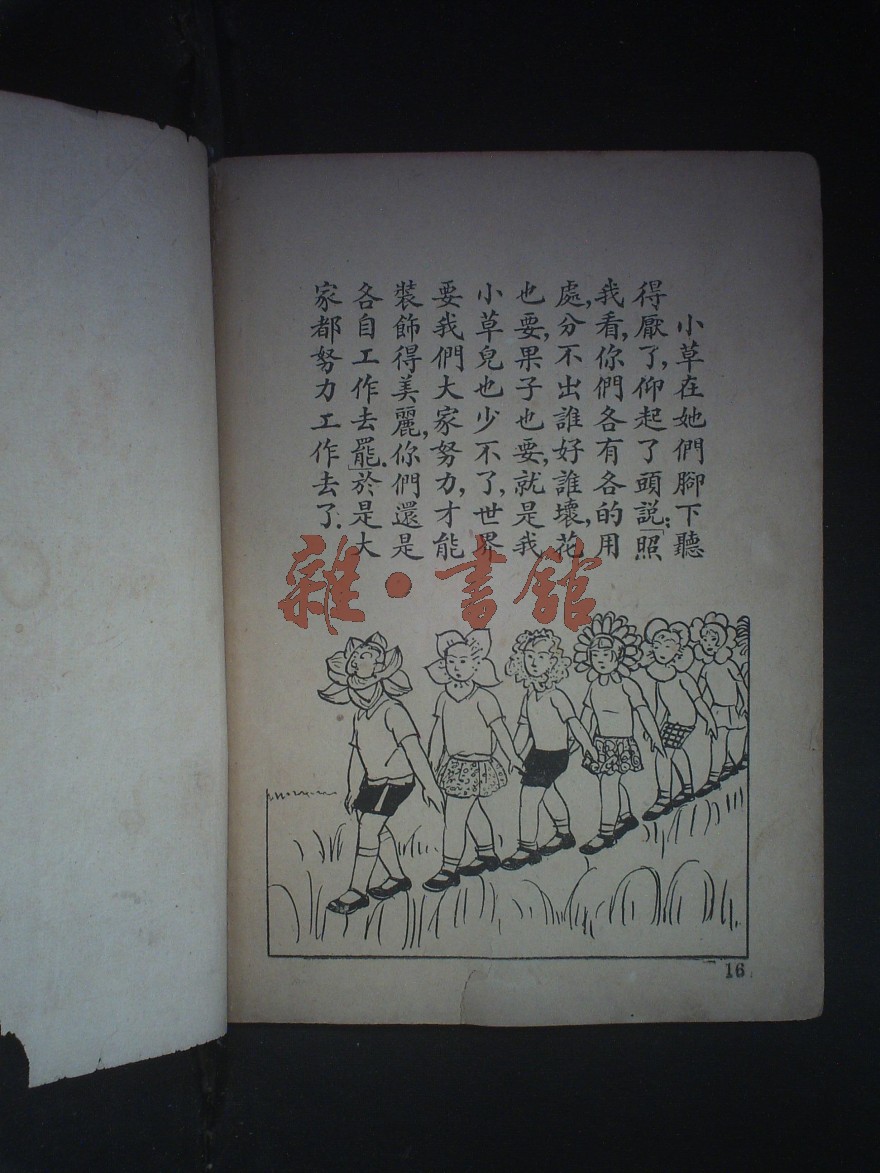 小草在她們腳下聽
得厭了,仰起了頭說:「照
我看,你們各有各的用
處,分不出誰好誰壞,花
也要,果子也要,就是我
小草兒也少不了,世界
要我們大家努力,才能
裝飾得美麗,你們還是
各自工作去罷.」於是大
家都努力工作去了.
雜·書館
16